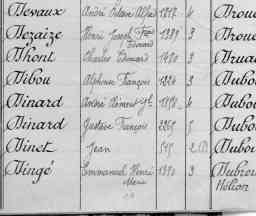 Devaux André Odean Alfred 1217 4 Drou
Dezaize Henri Joseph Fçs Edouard 1389 3 Drou
Dhont Charles Edouard 1420 3 Drua
Dibou Alphonse François 1224 3 Dubo
Dinard André Clément 1158 4 Dubou
Dinard Gustave François 2265 5 Dubou
Dinet Jean 515 2 Dubou
Dingé Emmanuel Henri 1370 3 Dubreu
Hélion